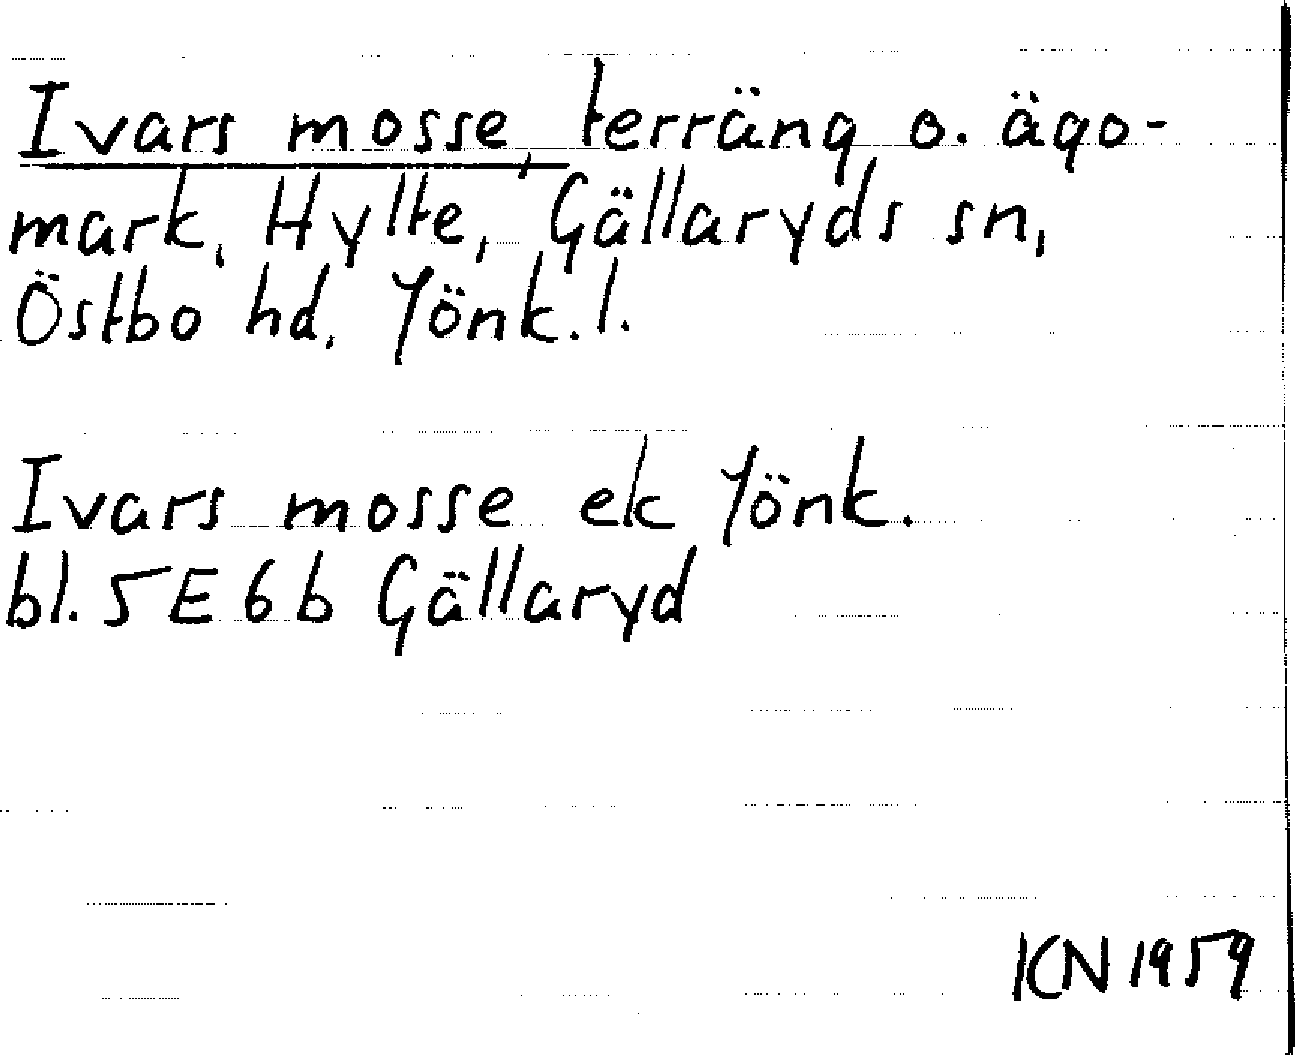 Ivars mosse, terräng o. ägo-
mark, Hylte, Gällaryds sn,
Östbo hd, Jönk. l.
Ivars mosse ek Jönk.
bl. 5E6b Gällaryd
KN 1959